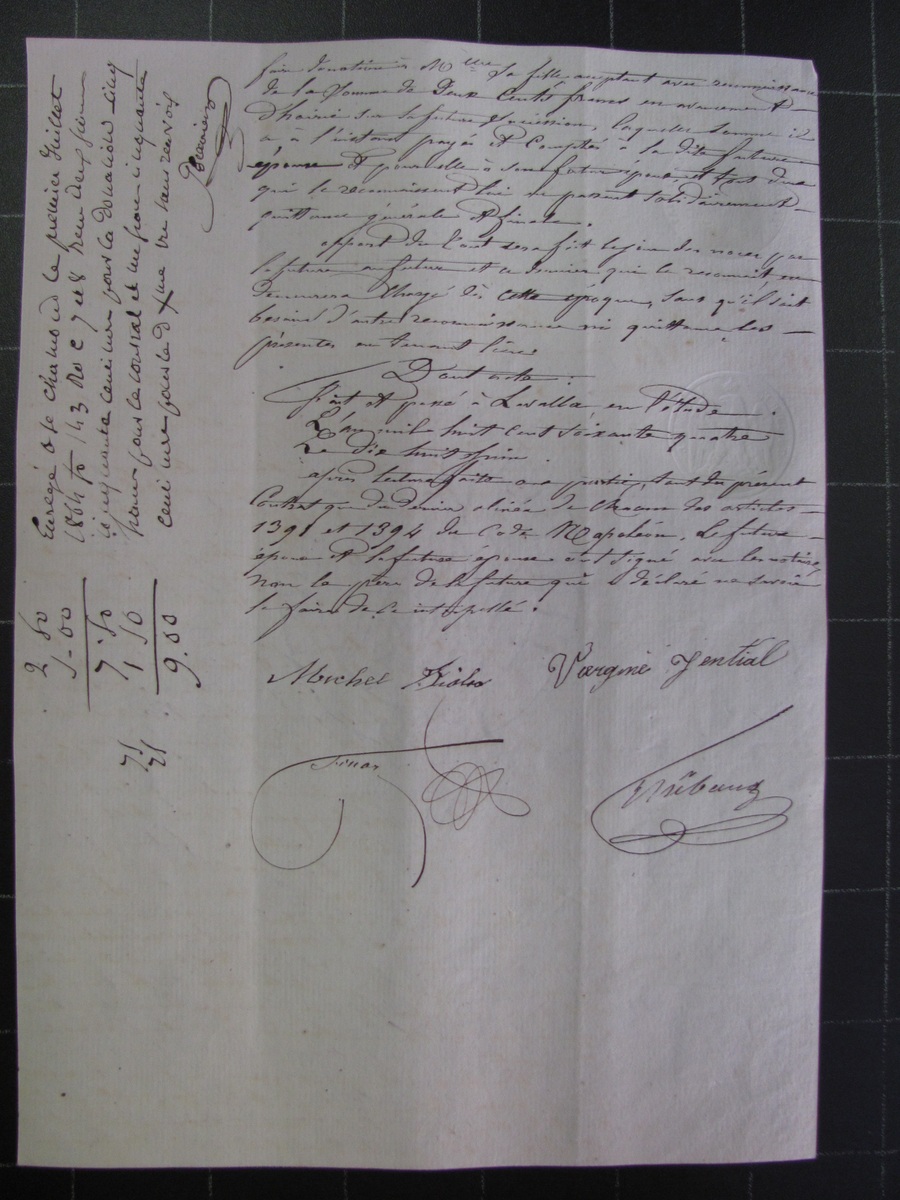 fait donation à M elle sa fille acceptant avec reconnaissance
de la somme de deux cents francs en avancement
d'hoirie sur sa future succession, laquelle somme il
a à l'instant payée et comptée à la dite future
épouse et pour elle à son futur époux et tous deux
qui le reconnaissent lui en passent solidairement
quittance générale et finale.
apport du tout sera fait le jour des noces par
la future au futur et ce dernier qui le reconnait en
demeurera chargé dès cette époque, sans qu'il soit
besoin d'autre reconnaissance ni quittance les
présentes en tenant lieu
Dont acte.
fait et passé à Lavalla, en l'étude
L'an mil huit cent soixante quatre
Le dix huit juin
après lecture faite aux parties, tant du présent
Contrat que du dernier alinéa de chacun des articles
1391 et 1394 du Code Napoléon. Le futur
époux et la future épouse ont signé avec les notaires
non le père de la future qui a déclaré ne savoir
le faire de ce interpellé.
Michel Virginie Jential
Finaz
Enregé à St chamond le premier juillet
1864 fo 143 Ro C 7 et 8 reçu deux francs
cinquante centimes pour la donation cinq
francs pour le contrat et un franc cinquante
centimes pour le Dxme
2 50
5.00
7.50
1 50
9.00